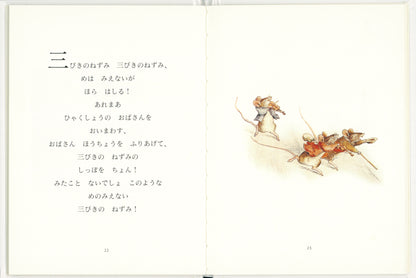 三びきのねずみ　三びきのねずみ、
めは　みえないが
ほら　はしる！
あれまあ
ひゃくしょうの　おばさんを
おいまわす、
おばさん　ほうちょうを　ふりあげて、
三びきの　ねずみの
しっぽを　ちょん！
みたこと　ないでしょ　このような
めのみえない
三びきの　ねずみ！